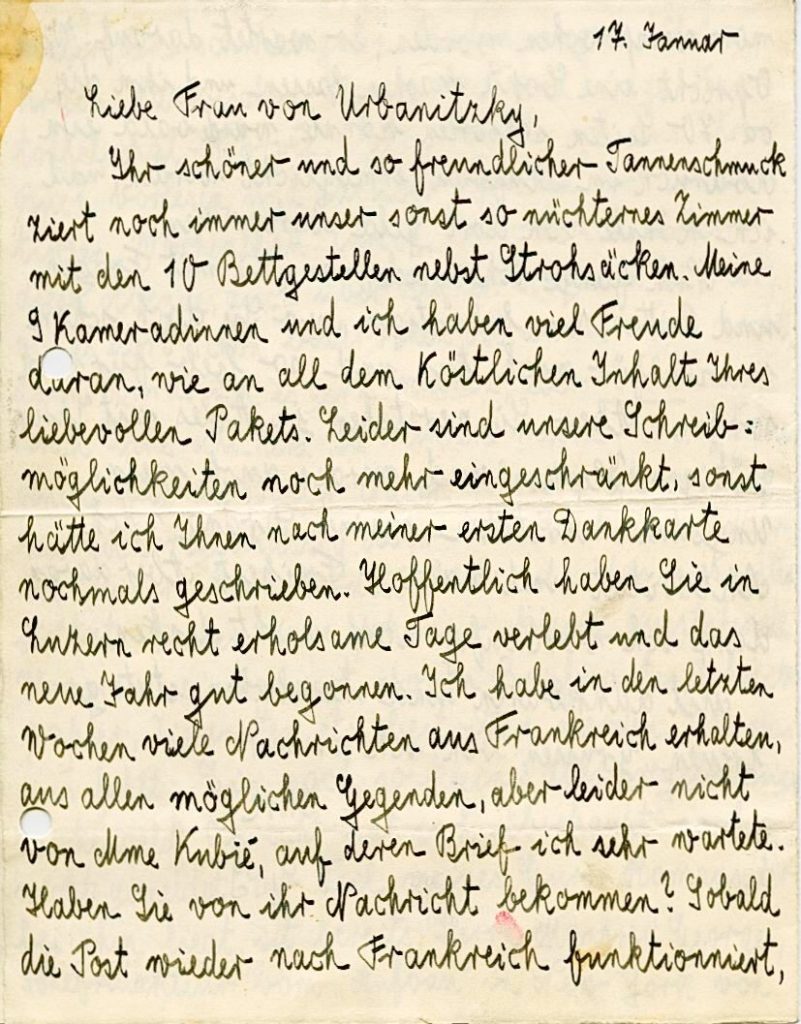 17. Januar
Liebe Frau von Urbanitzky,
Ihr schöner und so freundlicher Tannenschmuck
ziert noch immer unser sonst so nüchternes Zimmer
mit den 10 Bettgestellen nebst Strohsäcken. Meine
9 Kameradinnen und ich haben viel Freude
daran, wie an all dem Köstlichen Inhalt Ihres
liebevollen Pakets. Leider sind unsere Schreib=
möglichkeiten noch mehr eingeschränkt, sonst
hätte ich Ihnen nach meiner ersten Dankkarte
nochmals geschrieben. Hoffentlich haben Sie in
Luzern recht erholsame Tage verlebt und das
neue Jahr gut begonnen. Ich habe in den letzten
Wochen viele Nachrichten aus Frankreich erhalten,
aus allen möglichen Gegenden, aber leider nicht
von Mme Kubié, auf deren Brief ich sehr wartete.
Haben Sie von ihr Nachricht bekommen? Sobald
die Post wieder nach Frankreich funktionniert,